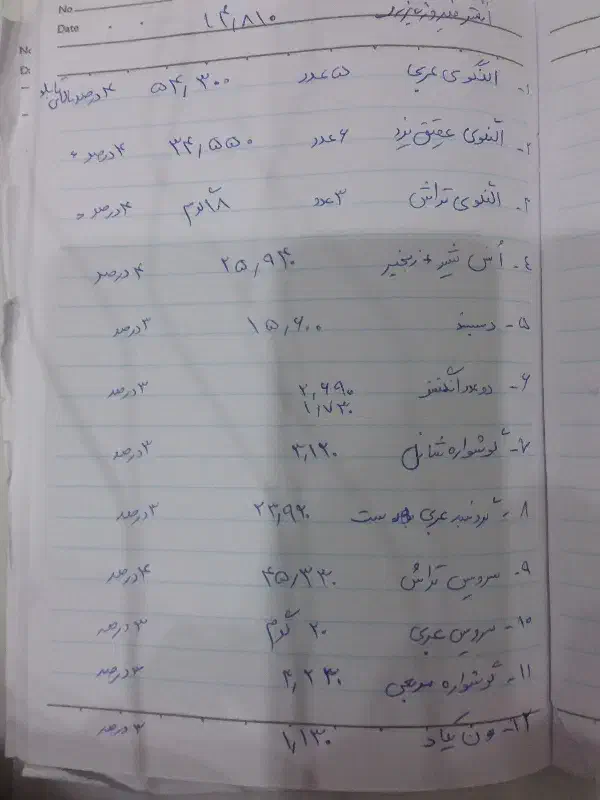 No
Date ۱۴,۸۱۰
۱- النگوی عربی ۵ عدد ۵۴,۳۰۰ ۴ درصد
۲- النگوی عقیق یزد ۶ عدد ۳۴,۵۵۰ ۴ درصد
۳- النگوی تراش ۳ عدد ۱۸ گرم ۴ درصد
۴- اُنس شیر + زنجیر ۲۵,۹۴۰ ۴ درصد
۵- دسبند ۱۵,۶۰۰ ۳ درصد
۶- دو عدد انگشتر ۲,۶۹۰ ۳ درصد
۱,۷۳۰
۷- گوشواره شانل ۳,۱۲۰ ۳ درصد
۸- گردنبند عربی ست ۲۳,۹۲۰ ۳ درصد
۹- سرویس تراش ۴۵,۳۳۰ ۴ درصد
۱۰- سرویس عربی ۲۰ گرم ۳ درصد
۱۱- گوشواره مربعی ۴,۲۳۰ ۳ درصد
۱۲- ون یکاد ۱,۱۳۰ ۳ درصد